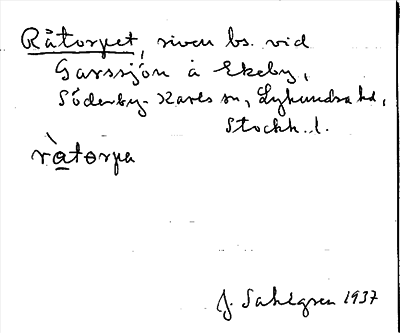 Råtorpet, riven bs. vid
Garssjön å Ekeby,
Söderby-Karls sn, Lyhundra hd,
Stockh. l.
ràtorpa
J. Sahlgren 1937